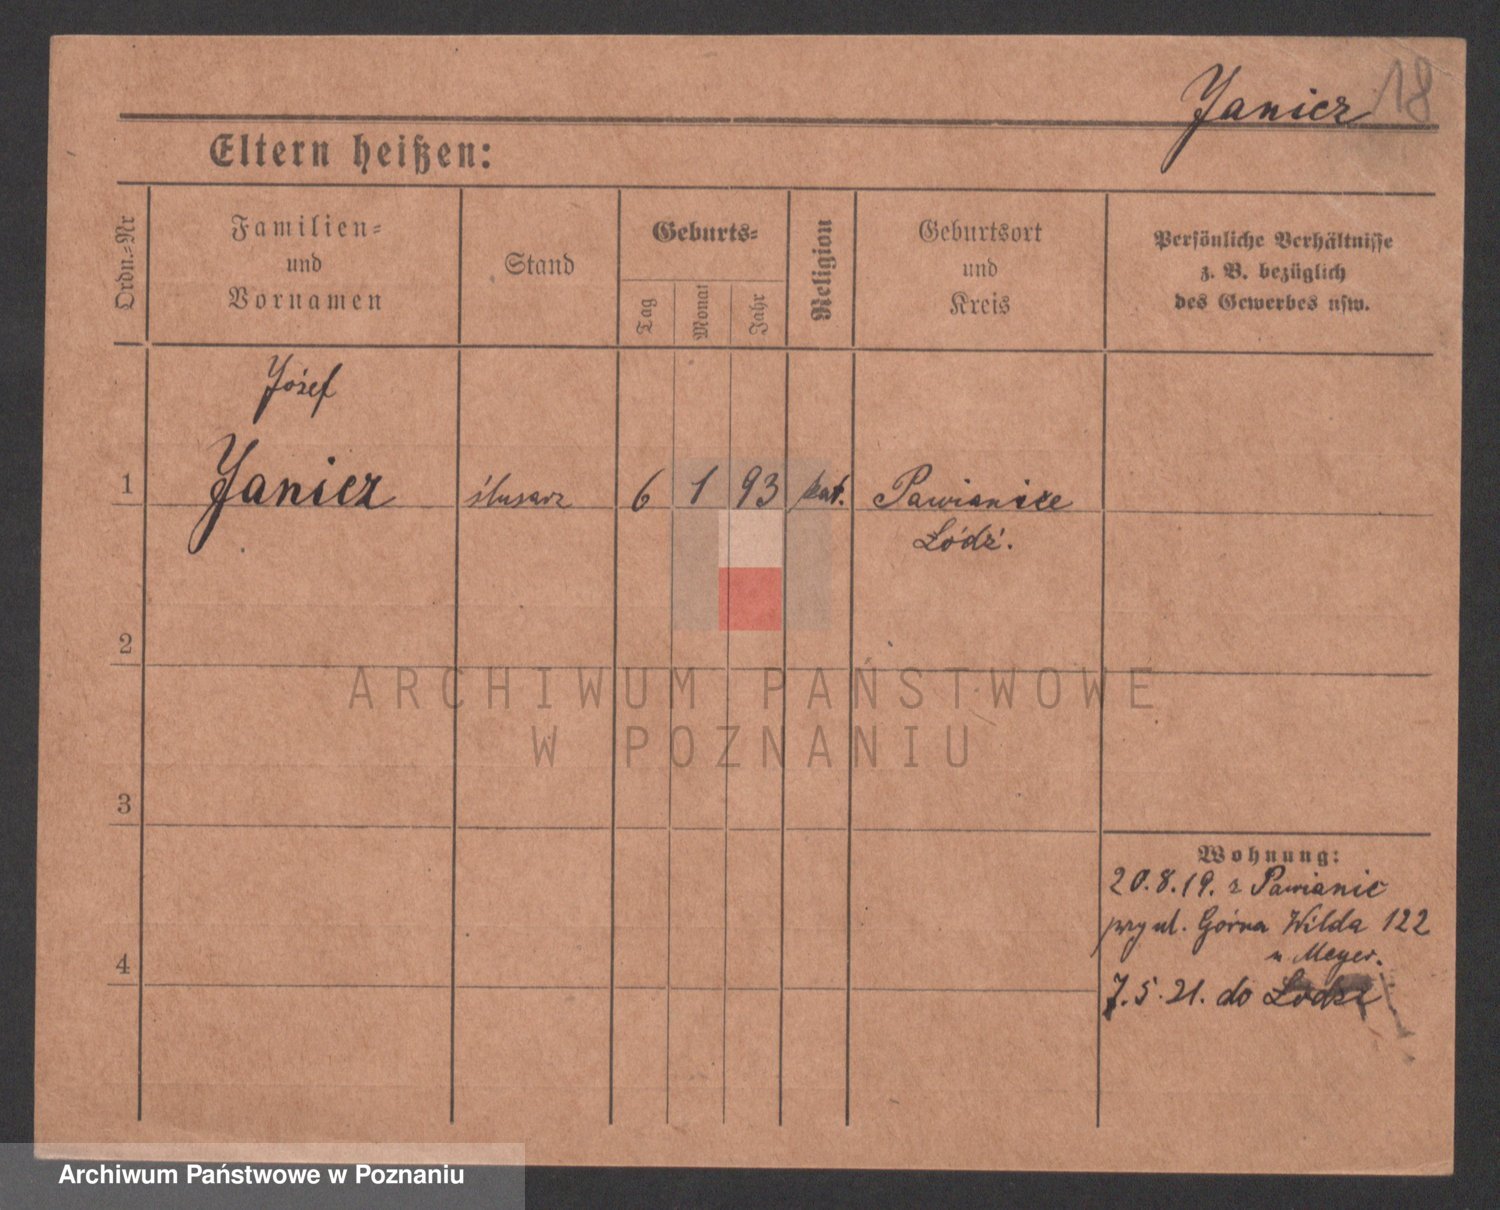 Janicz 18
Eltern heißen:
Ordn.-Nr
Familien-
und
Vornamen
Stand
Geburts-
Tag
Monat
Jahr
Religion
Geburtsort
und
Kreis
Persönliche Verhältnisse
z. B. bezüglich
des Gewerbes usw.
Józef
1 Janicz ślusarz 6 1 93 kat. Pawianice
Łódź.
2
ARCHIWUM PAŃSTWOWE
W POZNANIU
3
Wohnung:
20.8.19. z Pawianic
przy ul. Górna Wilda 122
u Meyer.
4
7.5.21. do Łodzi
Archiwum Państwowe w Poznaniu